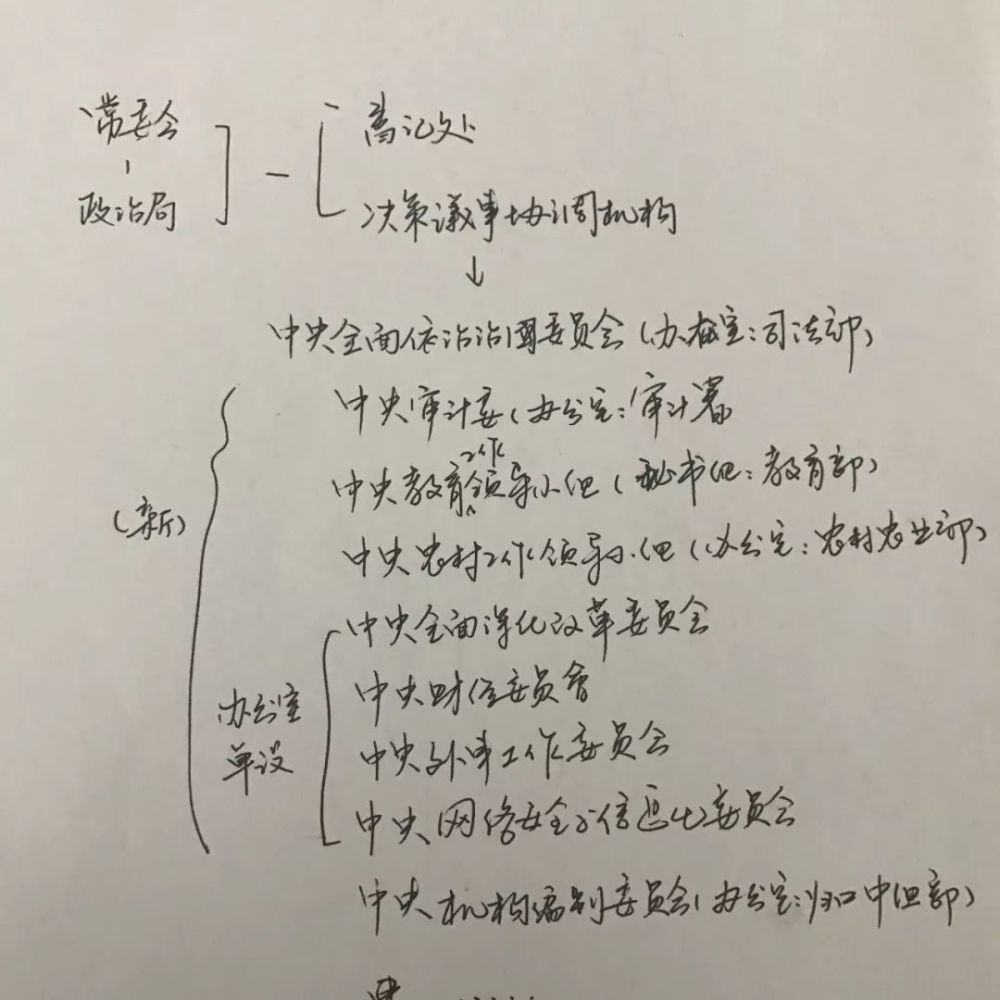 常委会
政治局
书记处
决策议事协调机构
中央全面依法治国委员会(办公室:司法部)
(新)
中央审计委(办公室:审计署
中央教育工作领导小组(秘书组:教育部)
中央农村工作领导小组(办公室:农村农业部)
办公室
单设
中央全面深化改革委员会
中央财经委员会
中央外事工作委员会
中央网络安全与信息化委员会
中央机构编制委员会(办公室:归口中组部)